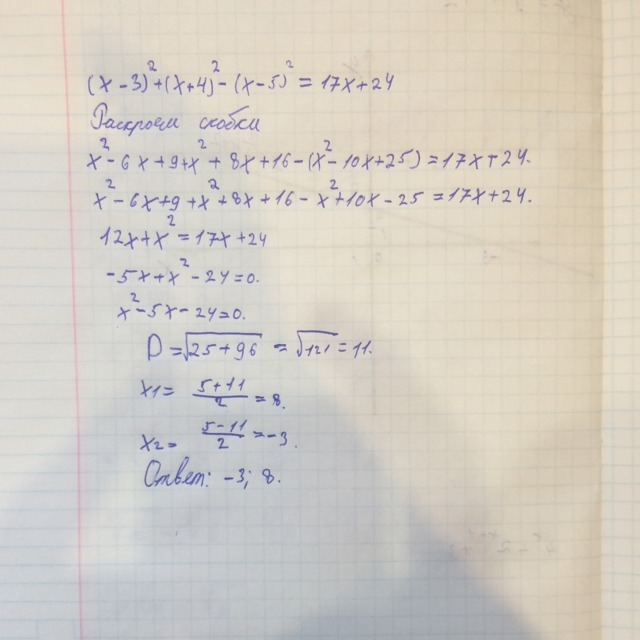 (x-3)²+(x+4)²-(x-5)²=17x+24
Раскроем скобки
x²-6x+9+x²+8x+16-(x²-10x+25)=17x+24.
x²-6x+9+x²+8x+16-x²+10x-25=17x+24.
12x+x²=17x+24
-5x+x²-24=0.
x²-5x-24=0.
D=√25+96=√121=11.
x1=5+11/2=8.
x2=5-11/2=-3.
Ответ: -3; 8.